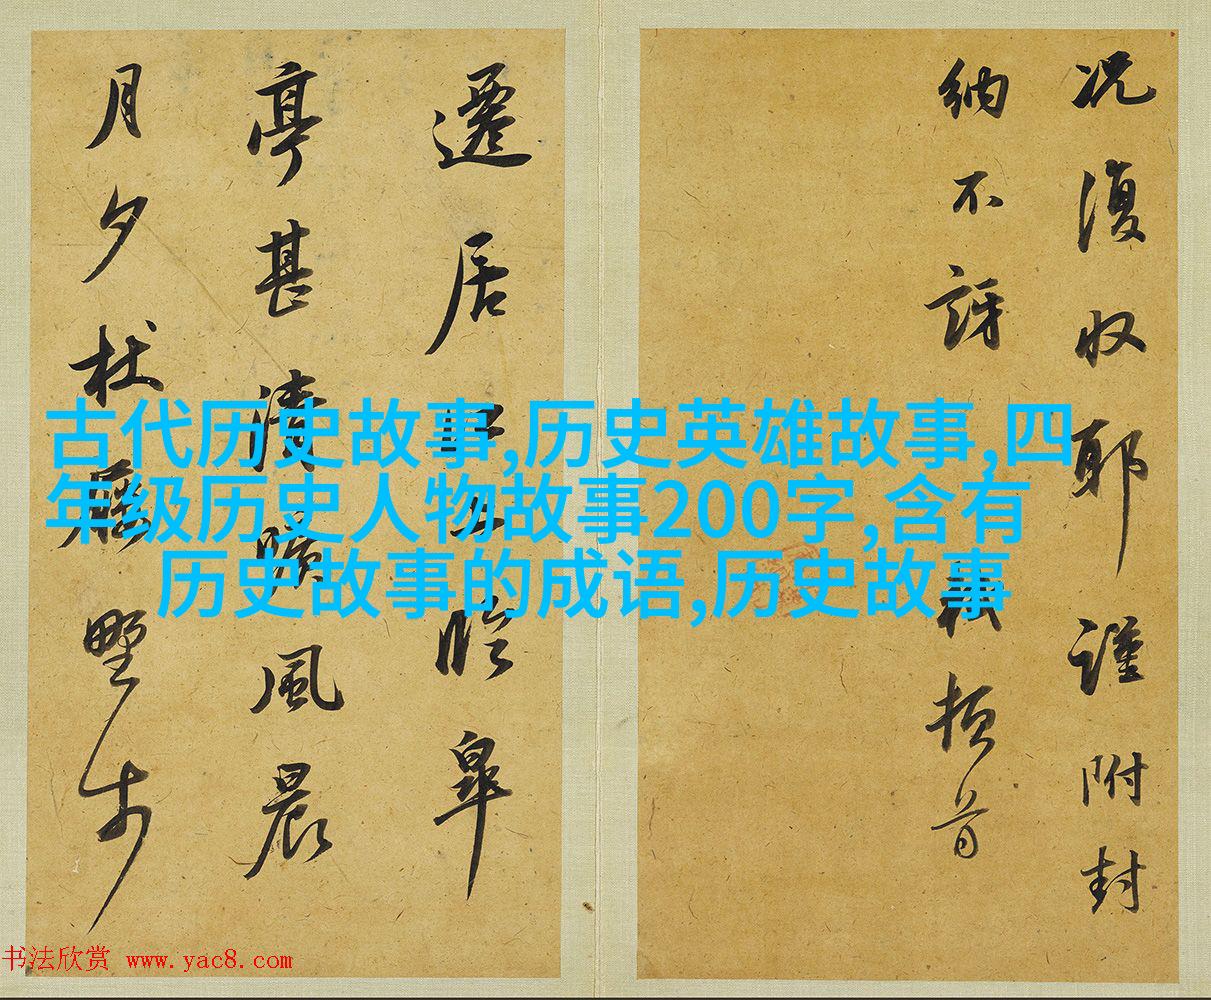 况復收耶謹附封
納不訝軾頓首
遷居江上臨皐
亭甚清曠風晨
月夕杖屨野步
古代历史故事,历史英雄故事,四
年级历史人物故事200字,含有
历史故事的成语,历史故事
书法欣赏 www.yac8.com